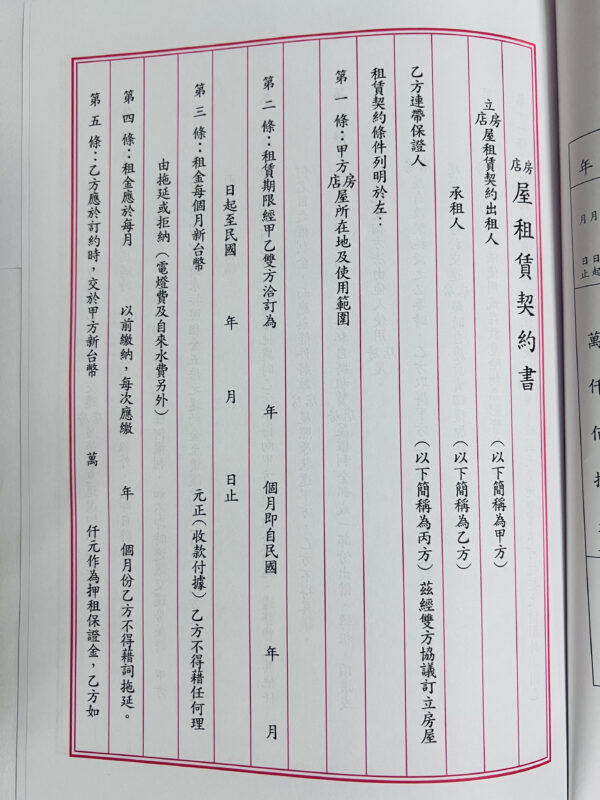 房店屋租賃契約書
立房店屋租賃契約出租人 (以下簡稱為甲方)
承租人 (以下簡稱為乙方)
乙方連帶保證人 (以下簡稱為丙方)茲經雙方協議訂立房屋
租賃契約條件列明於左：
第一條：甲方房店屋所在地及使用範圍
第二條：租賃期限經甲乙雙方洽訂為 年 個月即自民國 年 月
日起至民國 年 月 日止
第三條：租金每個月新台幣 元正(收款付據)乙方不得藉任何理
由拖延或拒納(電燈費及自來水費另外)
第四條：租金應於每月 以前繳納，每次應繳 年 個月份乙方不得藉詞拖延。
第五條：乙方應於訂約時，交於甲方新台幣 萬 仟元作為押租保證金，乙方如
年
月 月
日止 日起
萬
仟
佰